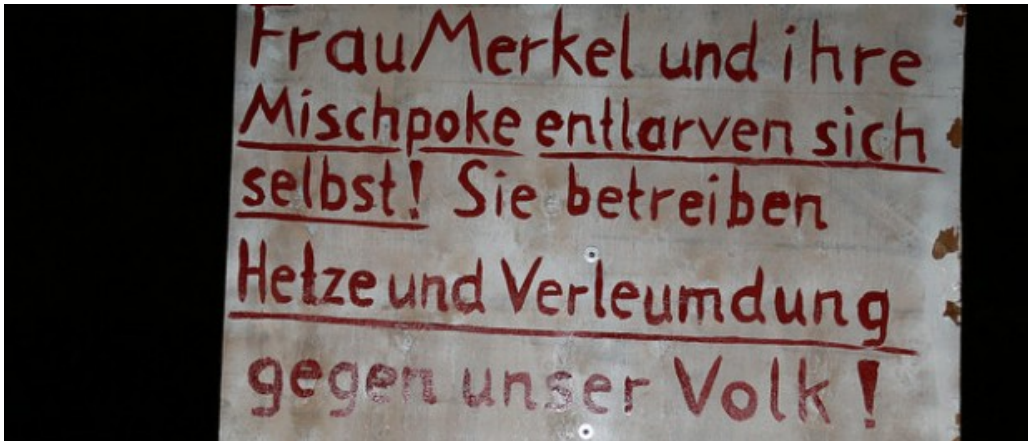 Frau Merkel und ihre
Mischpoke entlarven sich
selbst! Sie betreiben
Hetze und Verleumdung
gegen unser Volk!